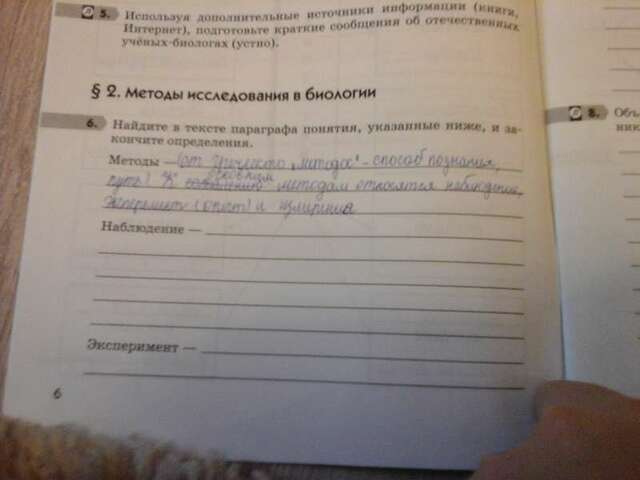 5. Используя дополнительные источники информации (книги,
Интернет), подготовьте краткие сообщения об отечественных
учёных-биологах (устно).
§ 2. Методы исследования в биологии
6. Найдите в тексте параграфа понятия, указанные ниже, и за-
кончите определения.
Методы — (от греческого „методос" - способ познания,
основным
путь) К методам относятся наблюдение,
эксперимент (опыт) и измерения
Наблюдение —
Эксперимент —
6
8. Объ
ник